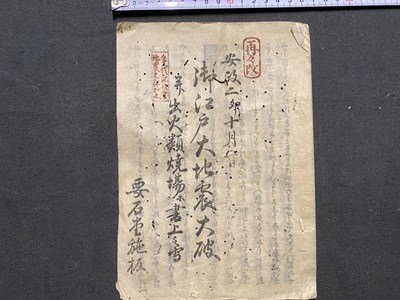 再々改
安政二卯十月二日
御江戸大地震大破
并出火類焼場所書上之写
要石堂施板